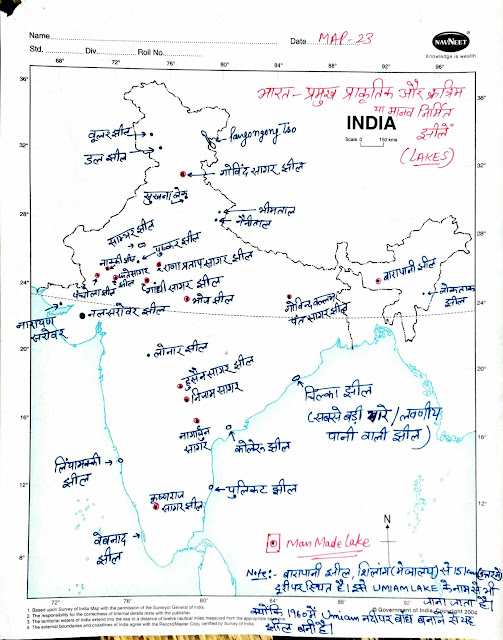 Name
Date MAP-23
NAVNEET
Knowledge is wealth
Std. Div. Roll No.
68° 72° 76° 80° 84° 88° 92° 96°
भारत - प्रमुख प्राकृतिक और कृत्रिम
या मानव निर्मित
झीलें
(LAKES)
INDIA
Scale 0 150 kms
36° 36°
वूलर झील
Pangongong Tso
डल झील
32° 32°
गोविंद सागर झील
सुखना लेक
भीमताल
नैनीताल
28° 28°
साम्भर झील
नक्की झील
पुष्कर झील
फतेसागर झील
राणा प्रताप सागर झील
पिचोला झील
गाँधी सागर झील
भोज झील
24° 24°
नारायण
सरोवर
नलसरोवर झील
गोविन्द बल्लभ
पंत सागर झील
बारापानी झील
लोकताक
झील
20° 20°
लोनार झील
हुसैन सागर झील
निजाम सागर
चिल्का झील
(सबसे बड़ी खारे/लवणीय
पानी वाली झील)
नागार्जुन
सागर
कोलेरु झील
16° 16°
लिंगामक्की
झील
पुलिकट झील
12° 12°
कृष्णराज
सागर झील
वेंबनाद
झील
8° 8°
N
Man Made Lake
Note:- बारापानी झील, शिलांग (मेघालय) से 15 km (उत्तर में)
दूरी पर स्थित है। इसे UMIAM LAKE के नाम से भी
जाना जाता है।
क्योंकि 1960 में Umiam नदी पर बाँध बनाने से यह
झील बनी है।
© Government of India Copyright 2004
1. Based upon Survey of India Map with the permission of the Surveyor General of India.
2. The responsibility for the correctness of internal details rests with the publisher.
3. The territorial waters of India extend into the sea to a distance of twelve nautical miles measured from the appropriate
4. The external boundaries and coastlines of India agree with the Record/Master Copy certified by Survey of India.